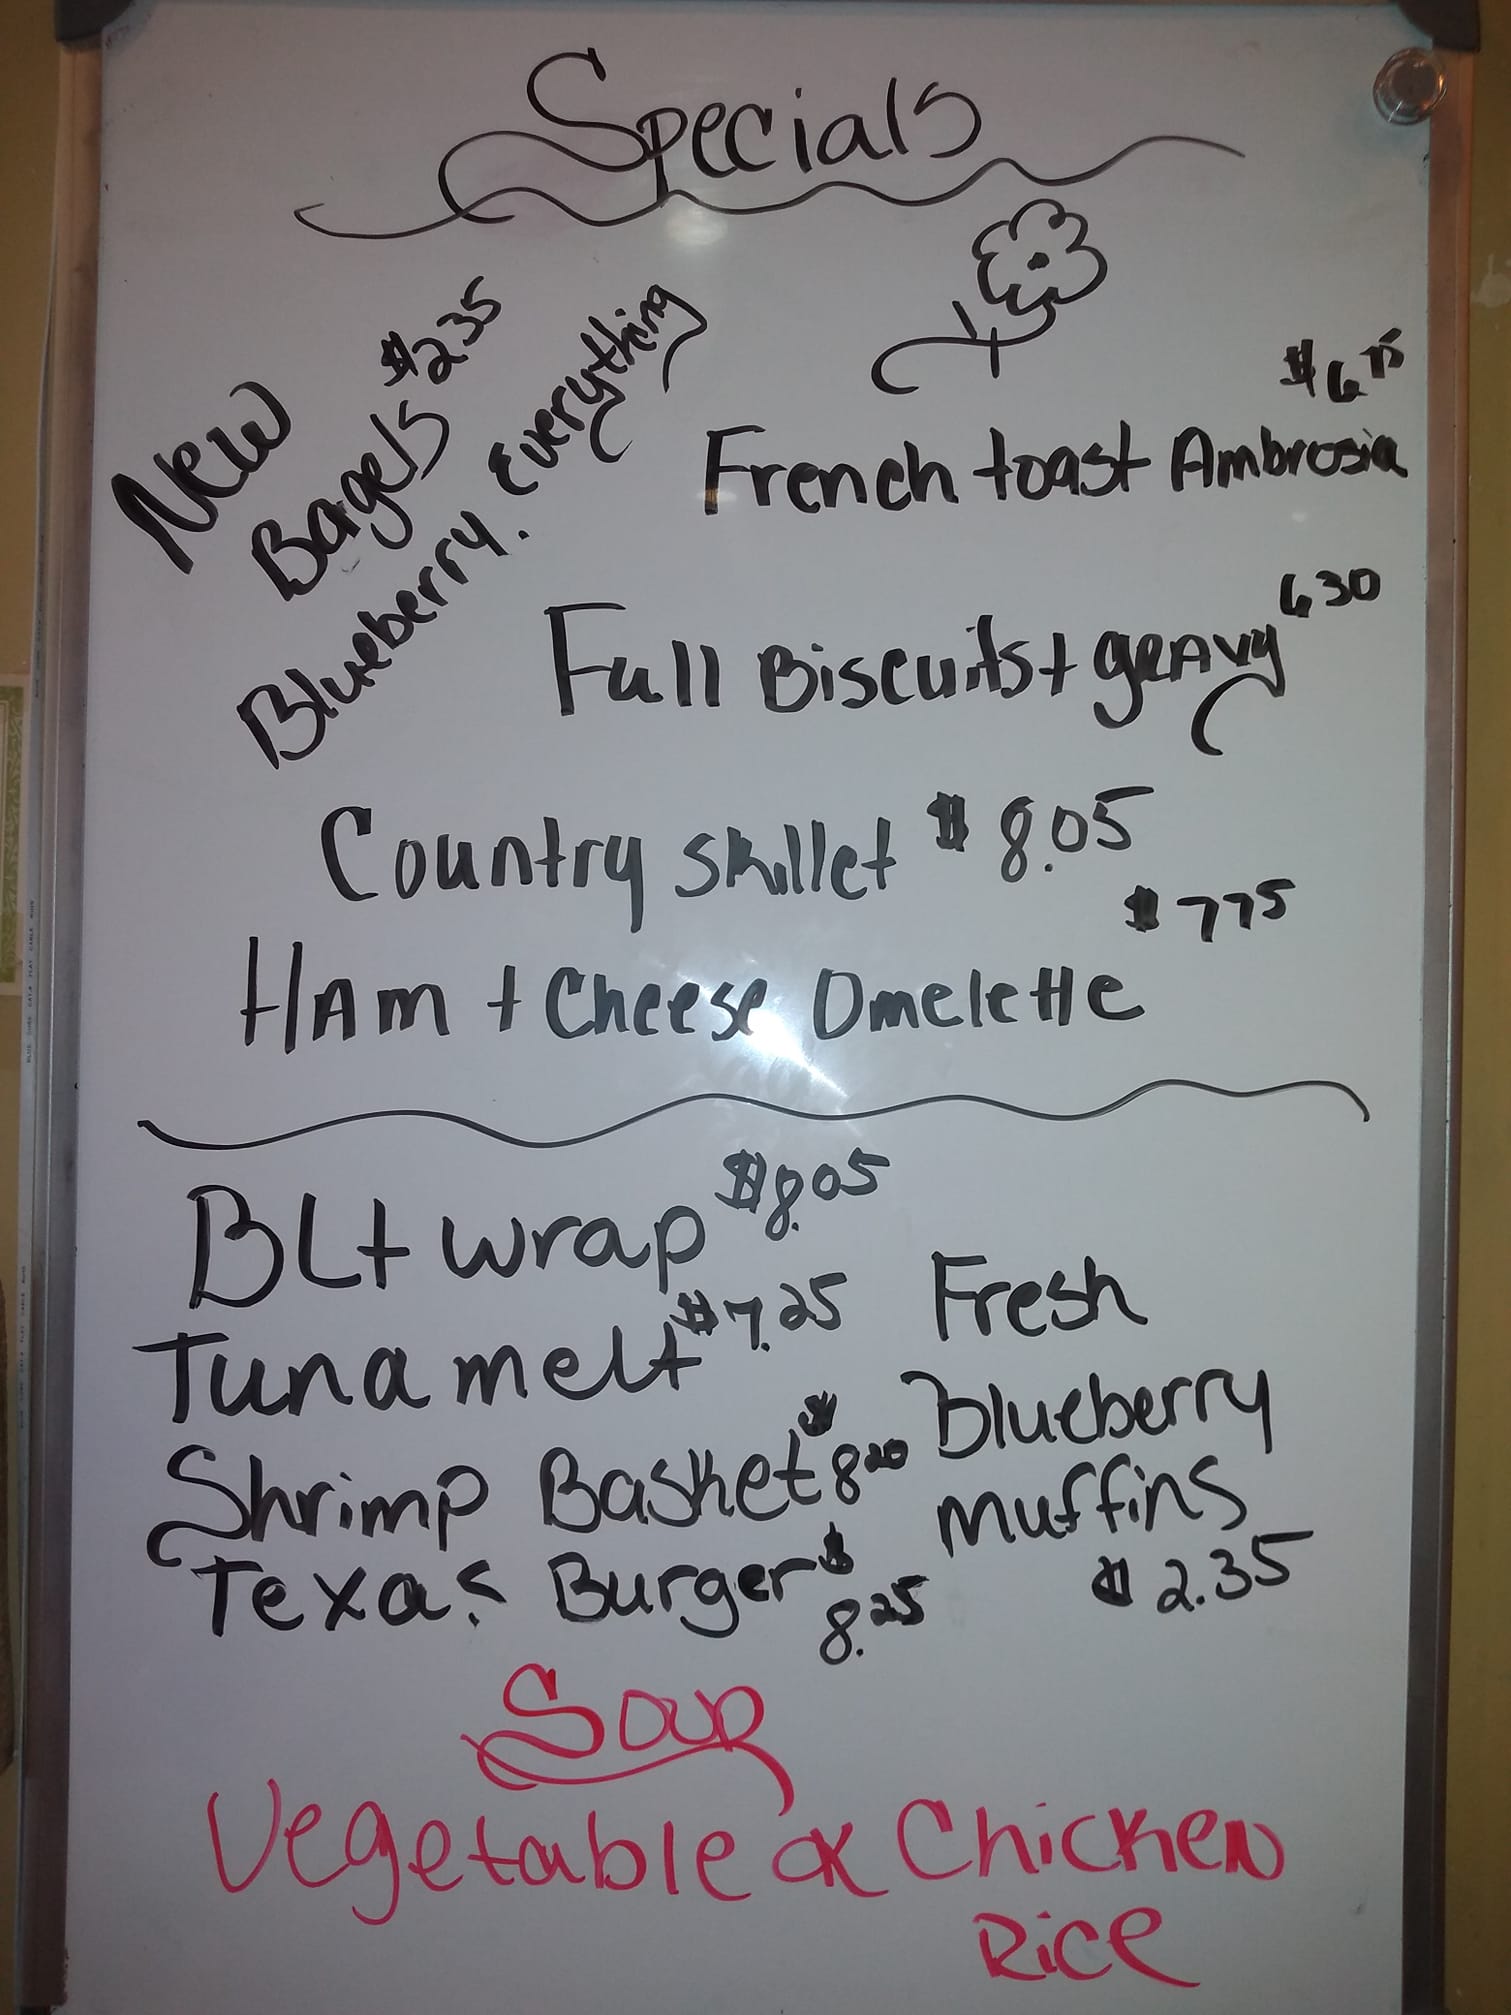 Specials
New
Bagels $2.35
Blueberry. Everything
$6.75
French toast Ambrosia
Full Biscuits + gravy 6.30
Country Skillet $8.05
$7.75
Ham + Cheese Omelette
BLt wrap $8.05
Tuna melt $7.25
Shrimp Basket $8.20
Texas Burger $8.25
Fresh
Blueberry
muffins
$2.35
Soup
Vegetable or Chicken
Rice